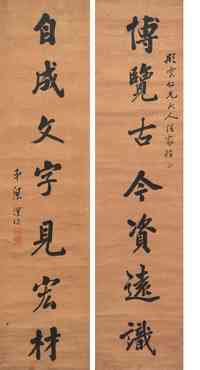 博覽古今資遠識
自成文字見宏材